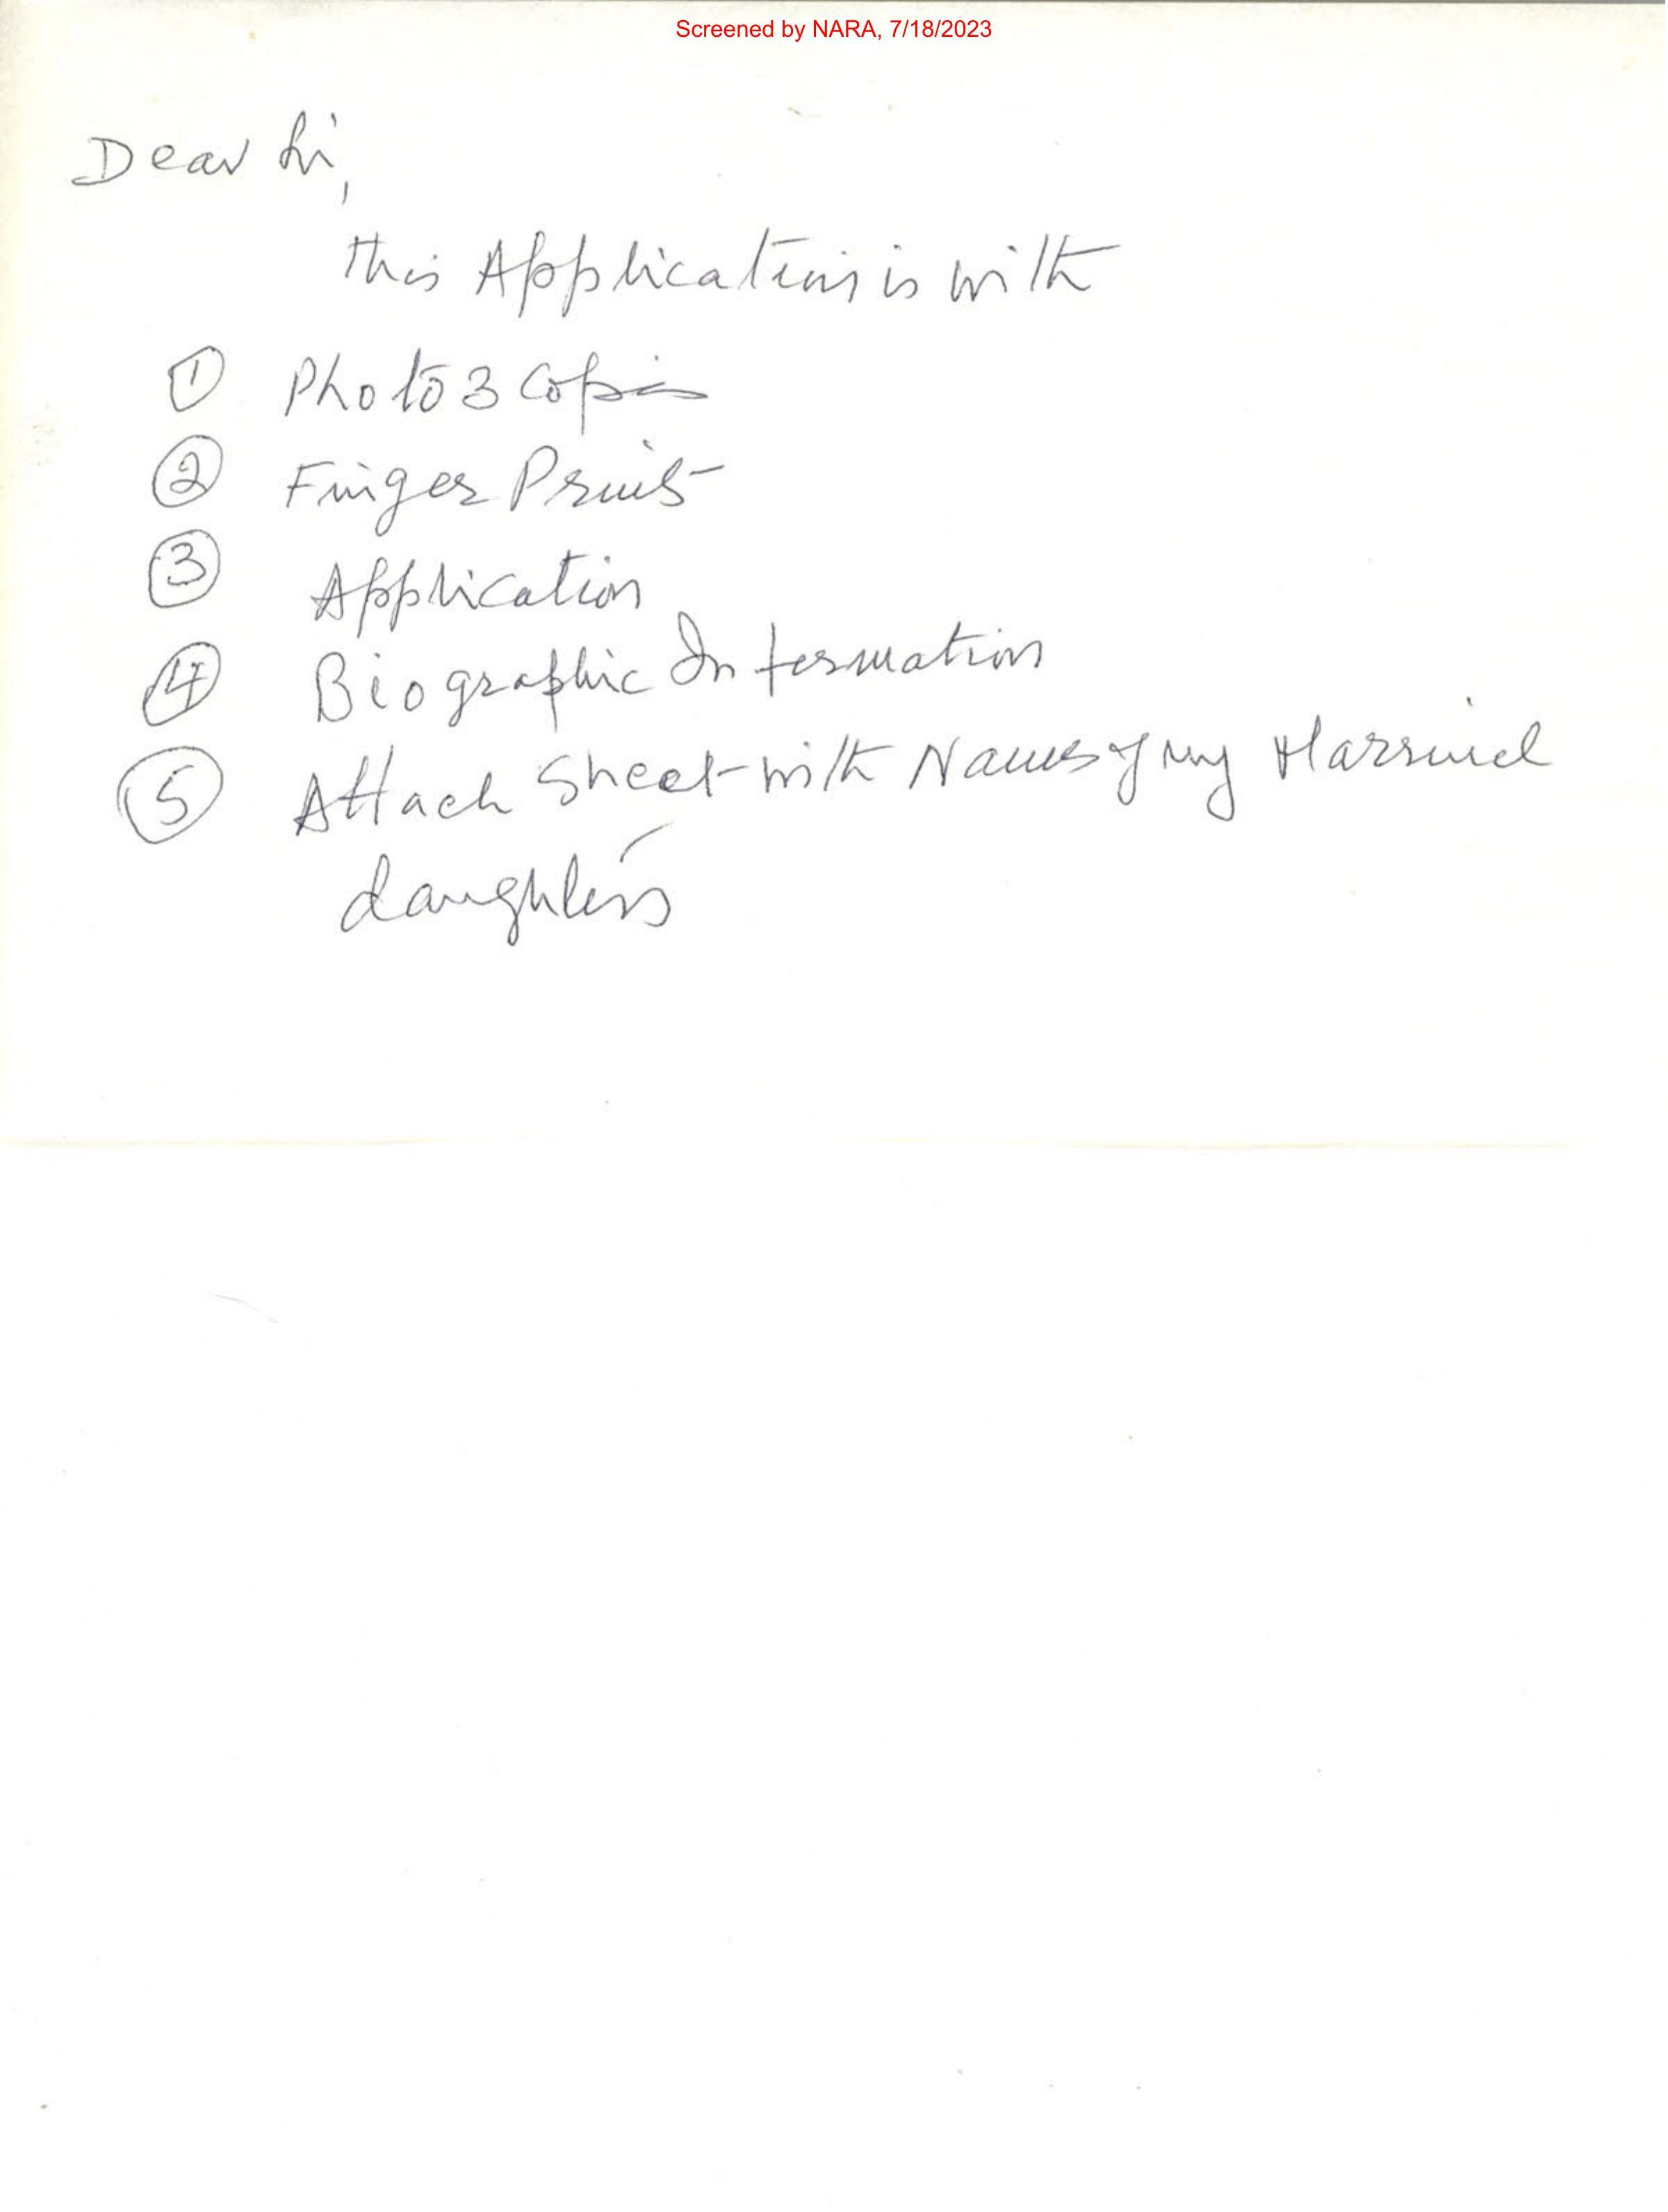 Screened by NARA, 7/18/2023
Dear Sir,
This Application is with
① Photo 3 Copies
② Finger Print
③ Application
④ Biographic Information
⑤ Attach Sheet with Names of my Married
daughters